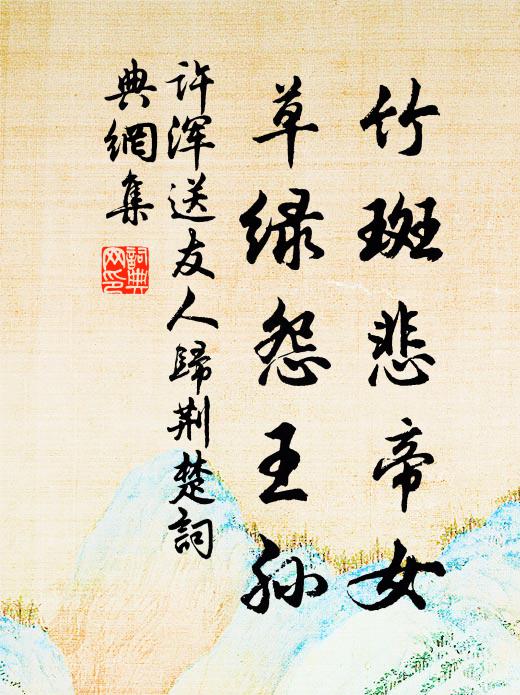 竹斑悲帝女
草绿怨王孙
许浑送友人歸荆楚詞
典網集
詞典
网印